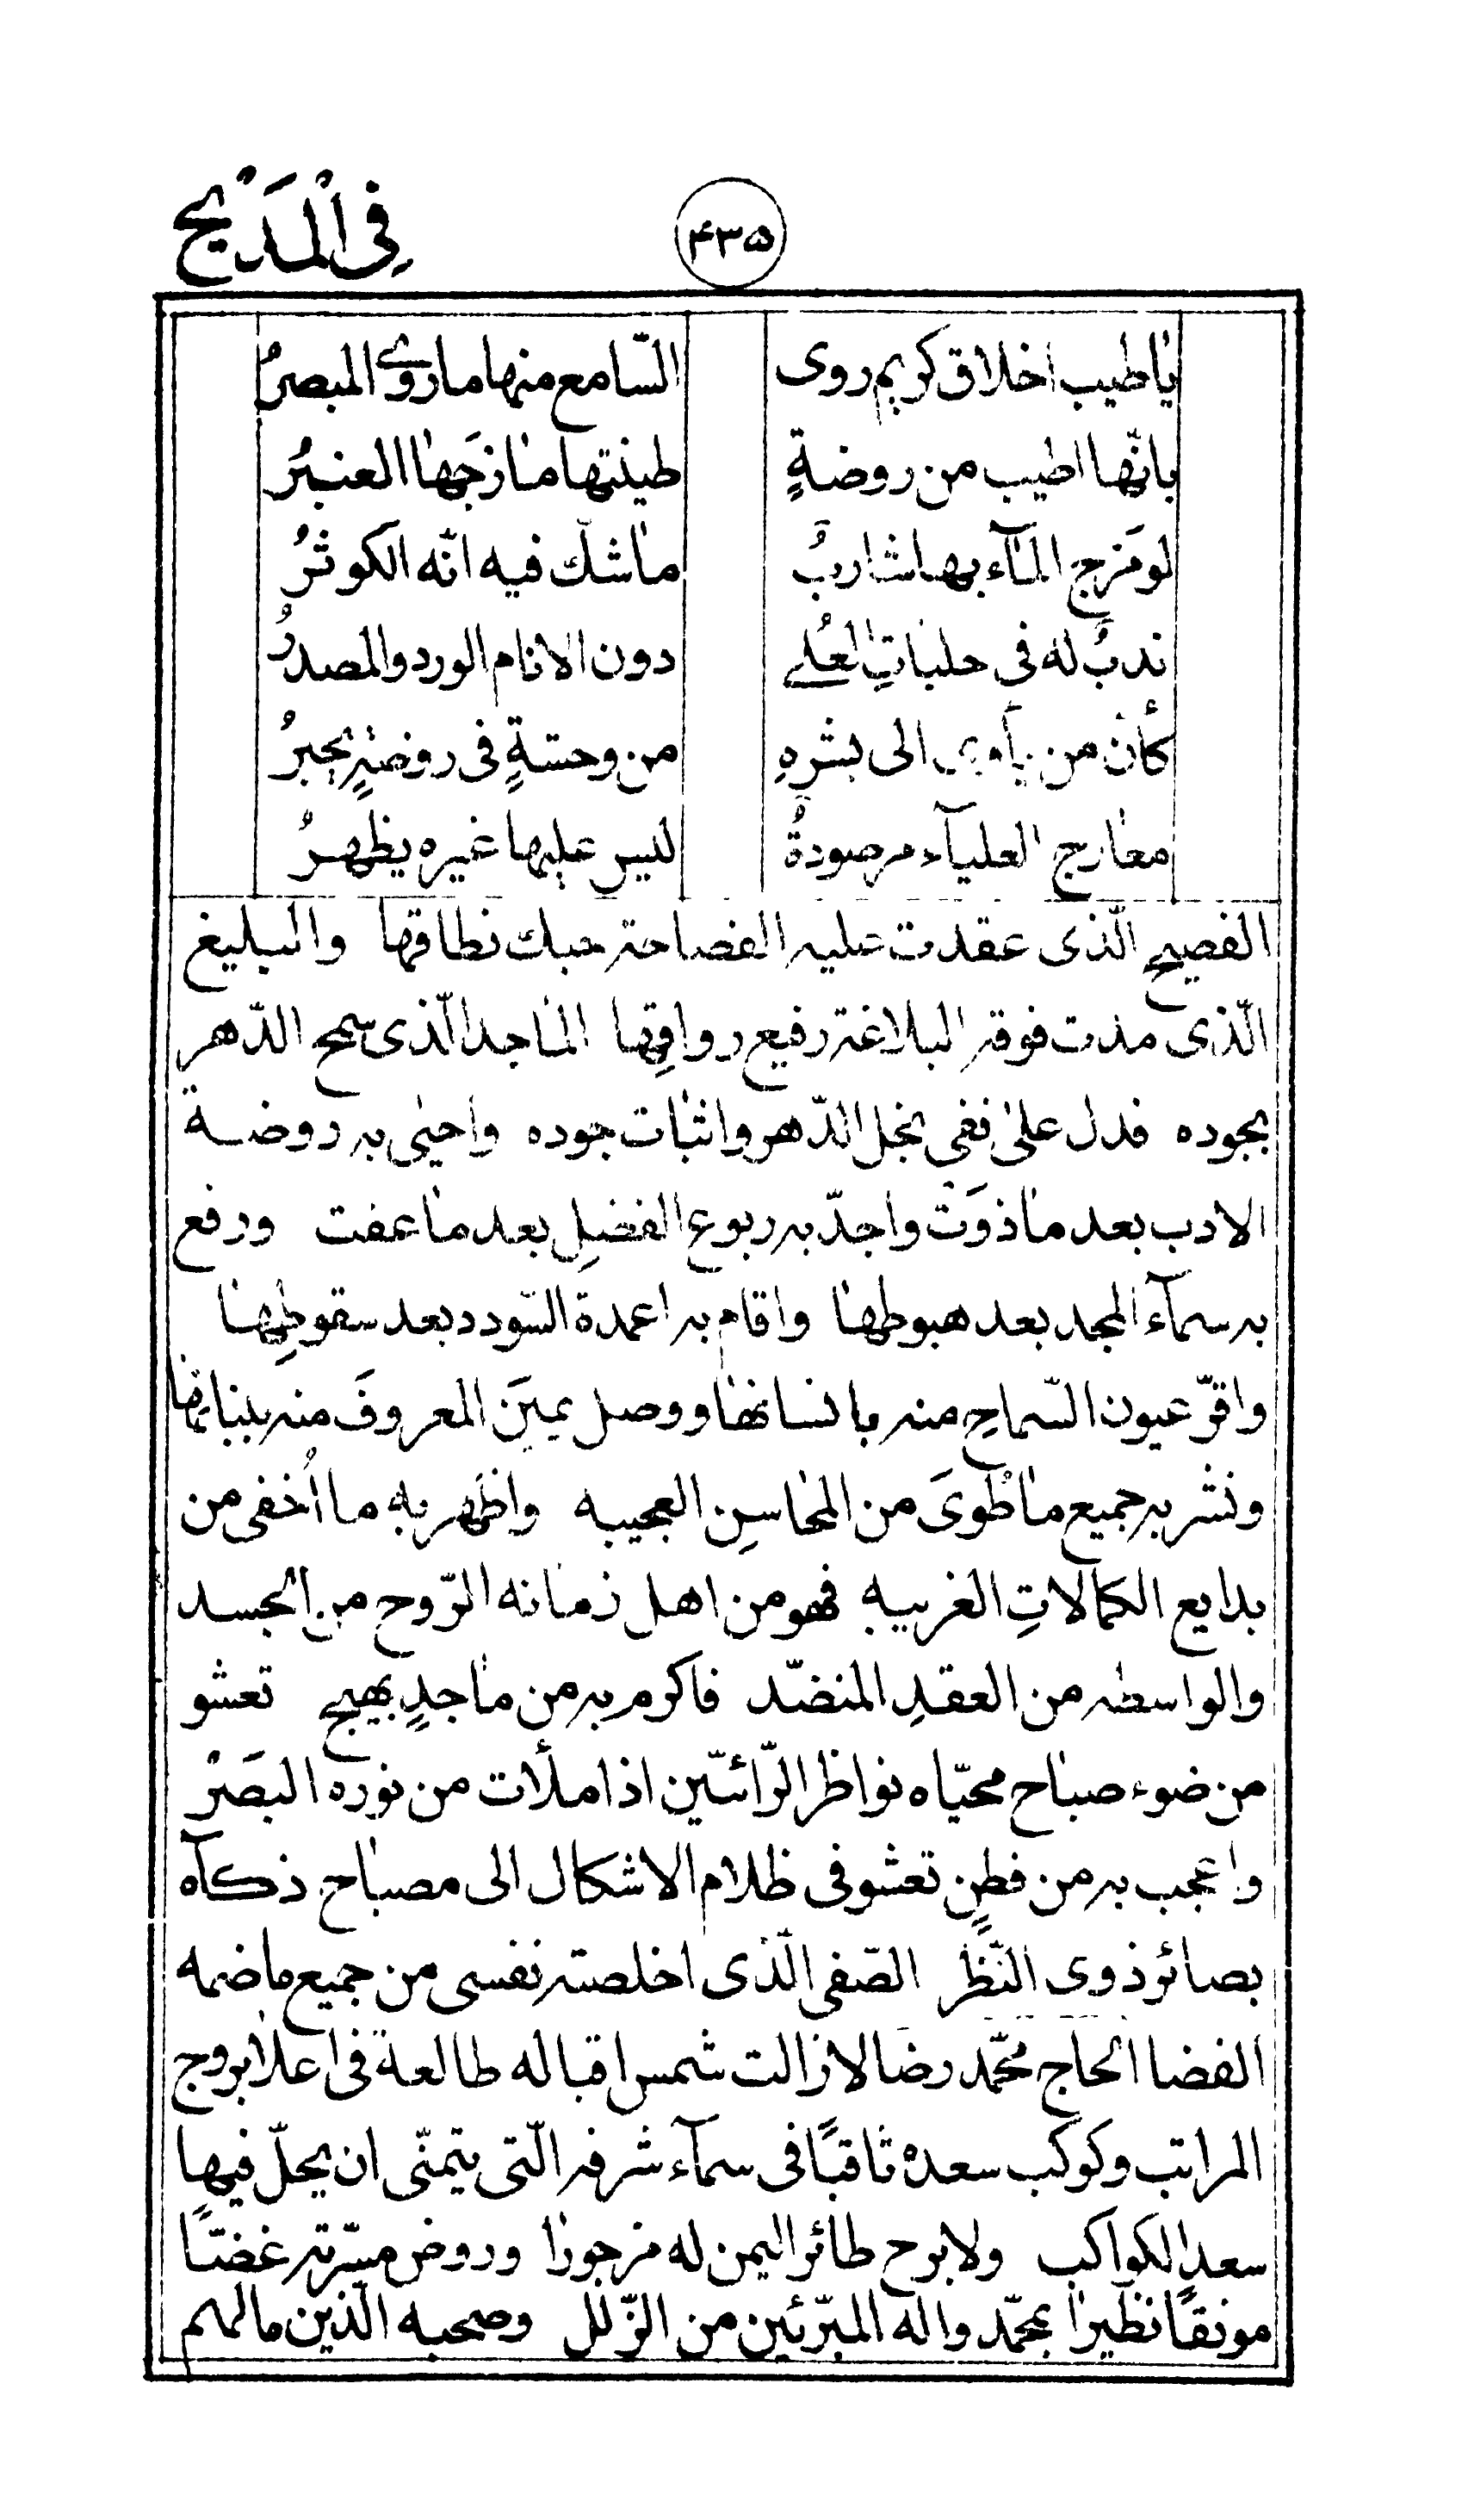 فِی الْمَدْیْحِ
۴۳۵
یا طیب اخلاق کریم روی السّامع منها ما روی المبصرُ
بانّها اطیب من روضةٍ طینتها مازَجَها العنبرُ
لو مَزج المآء بها شاربُ ما شكّ فیه انّه الکوثرُ
ندبُ له فی حلباتِ العُلی دون الانام الورد والمصدرُ
کأن من یأوی الی بشرهِ من وحشةٍ فی روضةٍ یحبرُ
معارج العلیآء مرصودةُ لیس علیها غیره یظهرُ
الفصیح الّذی عقدت علیه الفصاحة حبك نطاقها والبلیغ
الّذی مدت فوقه البلاغة رفیع رواقِها الماجد الّذی سمح الدّهر
بجوده فدل علیٰ نفی بخل الدّهر واثبات جوده واحیٰی به روضة
الادب بعد ما ذوَت واجدّ به ربوع الفضلِ بعد ما عفت ورفع
به سمآء المجد بعد هبوطها واقام به اعمدة السّودد بعد سقوطِها
واقرّ عیون السّماحِ منه بانسانها ووصل یمینَ المعروفَ منه ببنانها
ونشر به جمیع ما طُویَ من المحاسنِ العجیبه واظهر به ما اُخفی من
بدایع الکمالاتِ الغریبه فهو من اهل زمانه الرّوح من الجسد
والواسطه من العقدِ المنضّد فاکرم به من ماجدٍ بهیج تعشو
من ضوء صباح محیّاه نواظر الرّائیّین اذا ملأت من نوره البصَرْ
واعجب به من فطنٍ تعشو فی ظلام الاشکال الی مصباح ذکآه
بصائر ذوی النّظر الصّفی الّذی اخلصته نفسی من جمیع ما ضمه
الفضا الحاج محمّد رضا لا زالت شمس اقباله طالعة فی اعلا بروج
المراتب وکوکب سعده ثاقبًا فی سمآء شرفه الّتی یتمنّی ان یحلّ فیها
سعد الکواکب ولا برح طائر الیمن له مزجورا وروض مسّرته غضّا
مونقًا نظیرا بمحمّد واله المبرّئین من الزّلل وصحبه الّذین ما لهم